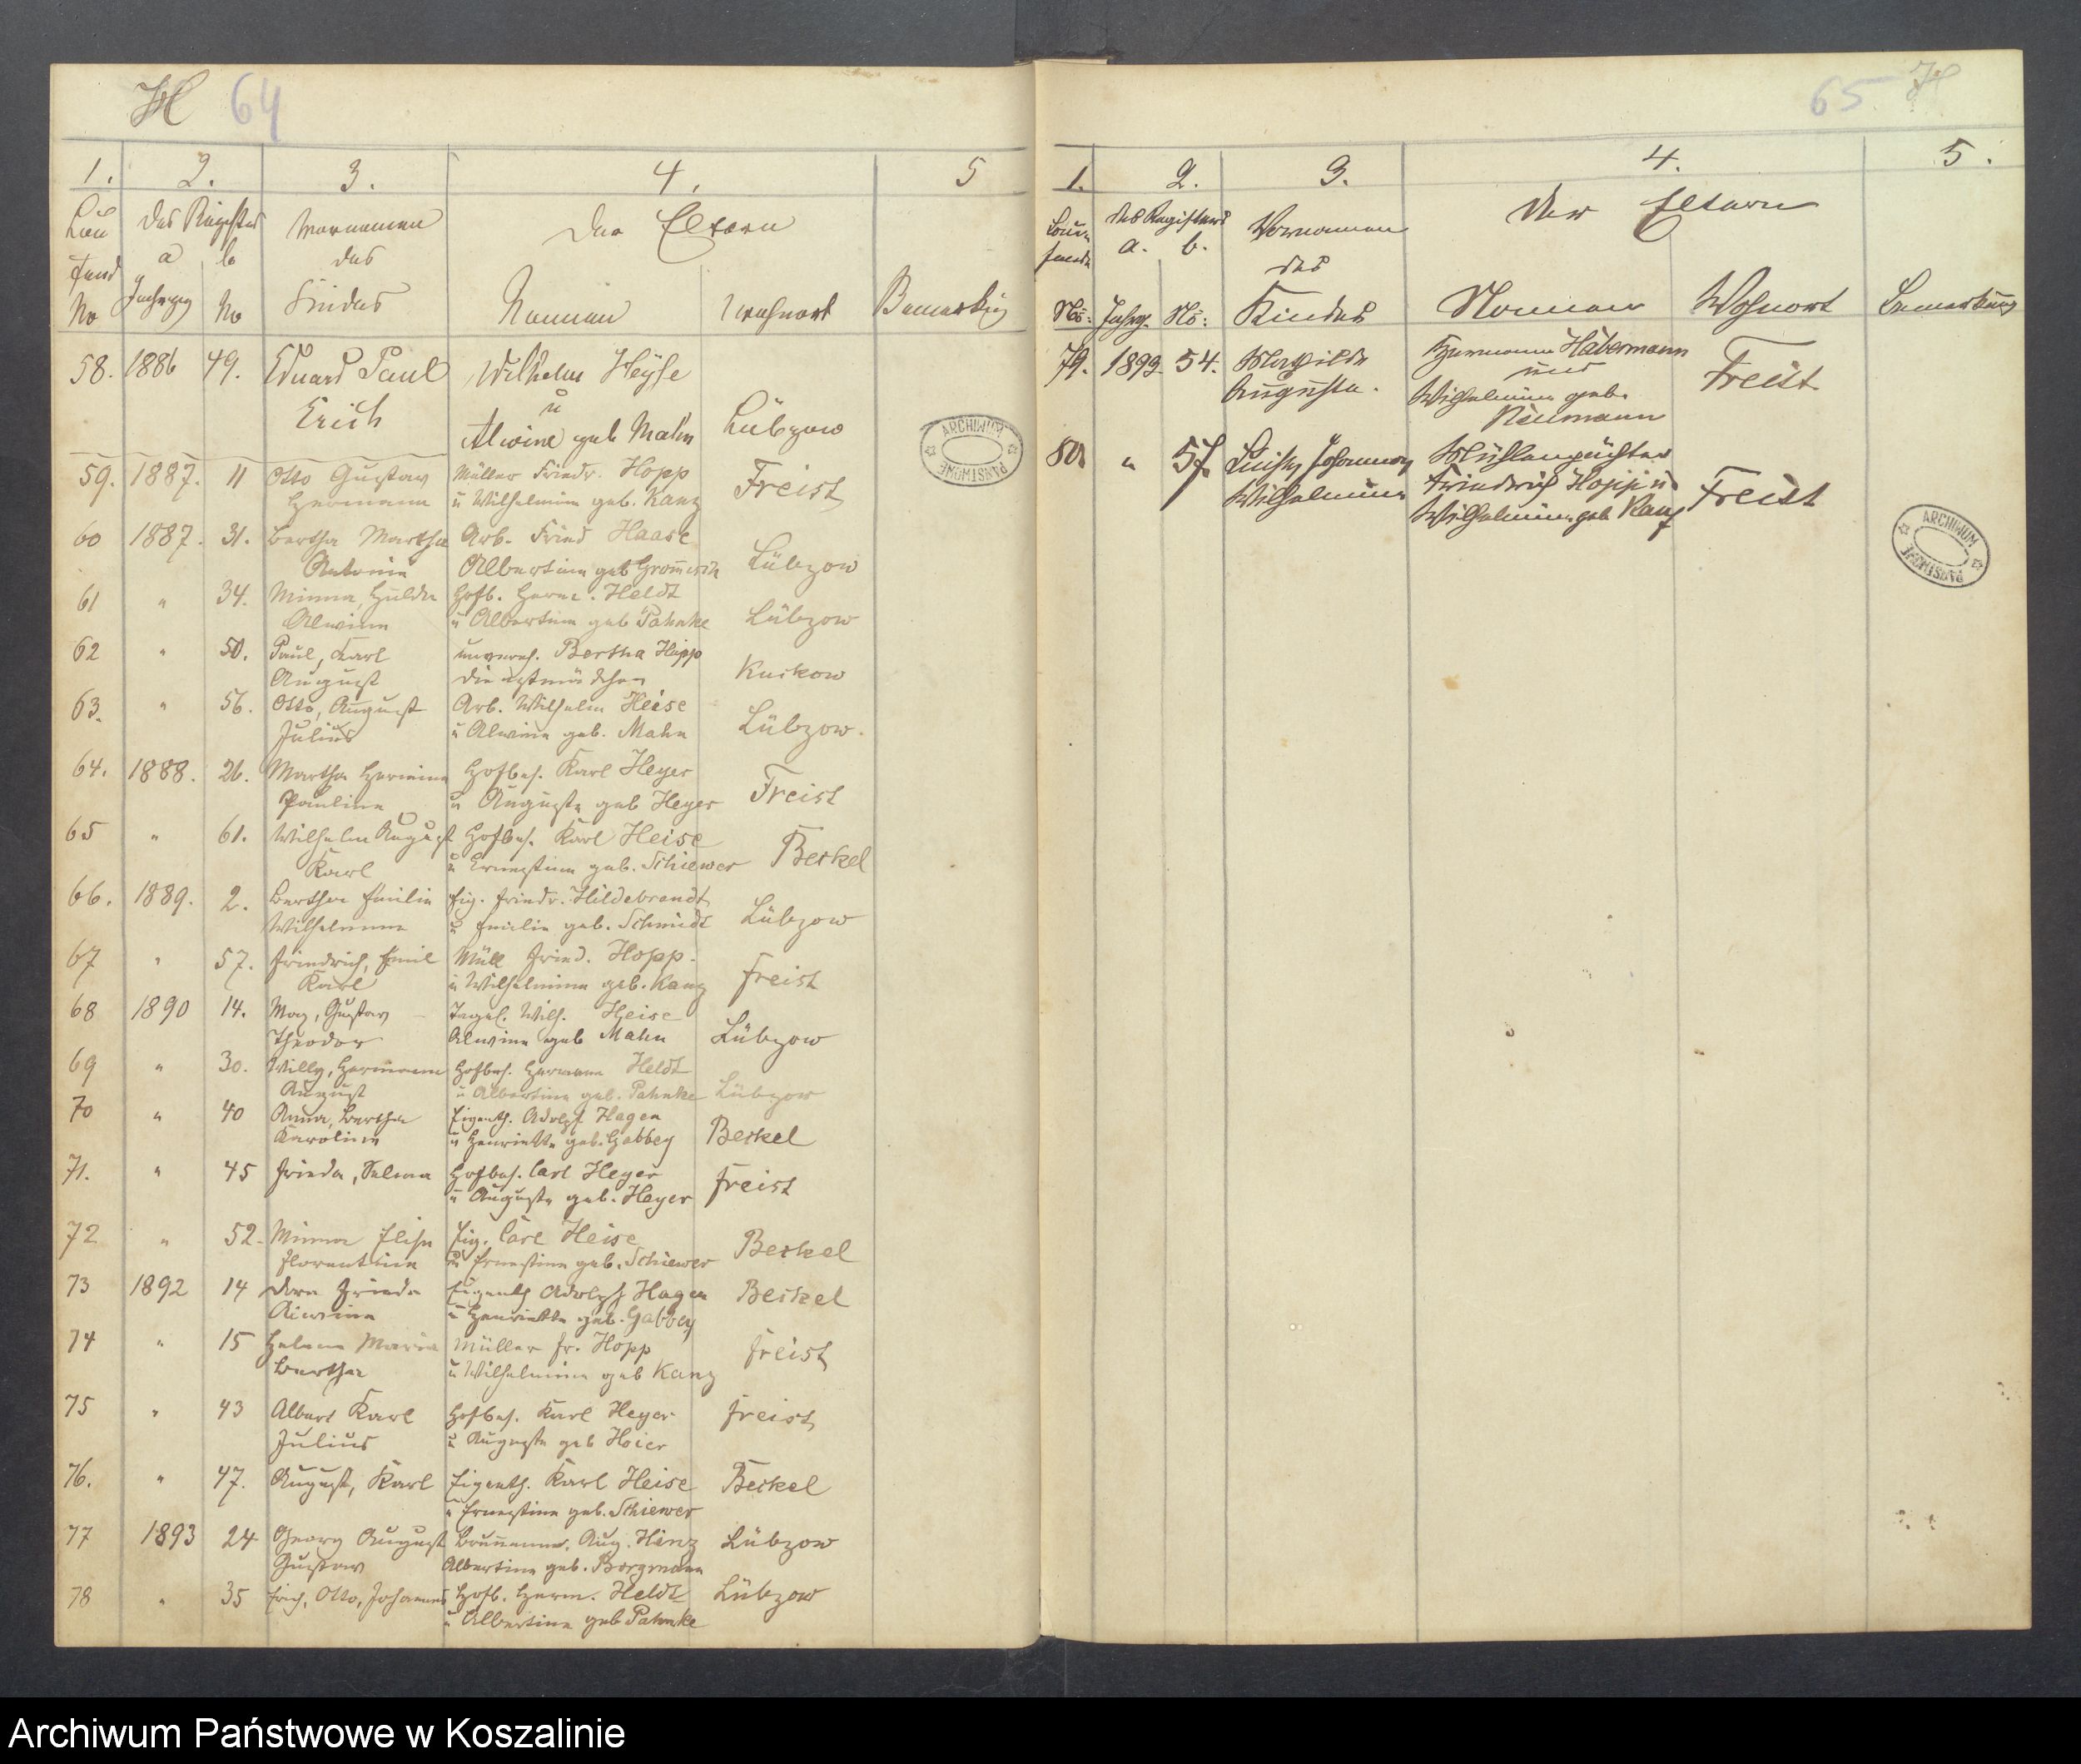 H 64
1. 2. 3. 4. 5
Lau des Registers Vornamen Der Eltern
fend a b des
No Jahrgang No Kindes Namen Wohnort Bemerkung
58. 1886 49. Eduard Paul Wilhelm Heyse
u
Erich Alwine geb Mahn Lübzow
59. 1887. 11 Otto Gustav Müller Friedr. Hopp Freist
Hermann u Wilhelmine geb. Kanz
60 1887. 31. Bertha Martha Arb. Fried Haase Lübzow
Antonie Albertine geb
61 " 34. Minna, Hulda Hofb. Herm. Heldt Lübzow
Alwine u Albertine geb Pahnke
62 " 50. Paul, Karl unvereh. Bertha Hopp Kuskow
August Dienstmädchen
63. " 56. Otto, August Arb. Wilhelm Heise Lübzow.
Julius u Alwine geb. Mahn
64. 1888. 26. Martha Hermine Hofbes. Karl Heyer Freist
Pauline u Auguste geb Heyer
65 " 61. Wilhelm August Hofbes. Karl Heise Beskel
Karl u Ernestine geb. Schiewer
66. 1889. 2. Bertha Emilie Eig. Friedr. Hildebrandt Lübzow
Wilhelmine u Emilie geb. Schmidt
67 " 57. Friedrich, Emil Müll Fried. Hopp. Freist
Karl u Wilhelmine geb. Kanz
68 1890 14. Max, Gustav Tagel. Wilh. Heise Lübzow
Theodor Alwine geb Mahn
69 " 30. Willy, Hermann Hofbes. Hermann Heldt
August u Albertine geb. Pahnke Lübzow
70 " 40 Anna, Bertha Eigenth. Adolph Hagen Beskel
Karoline u Henriette geb. Gabbey
71. " 45 Frieda, Selma Hofbes. Carl Heyer Freist
u Auguste geb. Heyer
72 " 52. Minna Elise Eig. Carl Heise Beskel
Florentine u Ernestine geb. Schiewer
73 1892 14 Frieda Eigenth Adolph Hagen Beskel
Alwine u Henriette geb. Gabbey
74 " 15 Helene Marie Müller Fr. Hopp Freist
Bertha u Wilhelmine geb Kanz
75 " 43 Albert Karl Hofbes. Karl Heyer Freist
Julius u Auguste geb Hoier
76. " 47. August, Karl Eigenth. Karl Heise Beskel
u Ernestine geb. Schiewer
77 1893 24 Georg August Aug. Hinz Lübzow
Gustav Albertine geb. Borgmann
78 " 35 Erich, Otto, Johannes Hofb. Herm. Heldt Lübzow
u Albertine geb Pahnke
ARCHIWUM
PAŃSTWOWE
65 H
1. 2. 3. 4. 5.
Laufende des Registers Vornamen Der Eltern
a. b. des
No: Jahrg. No: Kindes Namen Wohnort Bemerkung
79. 1893. 54. Mathilde Hermann Habermann Freist
und
Auguste. Wilhelmine geb.
Neumann
80. " 57. Luise Johanna Mühlenpächter
Wilhelmine Friedrich Hopp u Freist
Wilhelmine geb Kanz
ARCHIWUM
PAŃSTWOWE
Archiwum Państwowe w Koszalinie